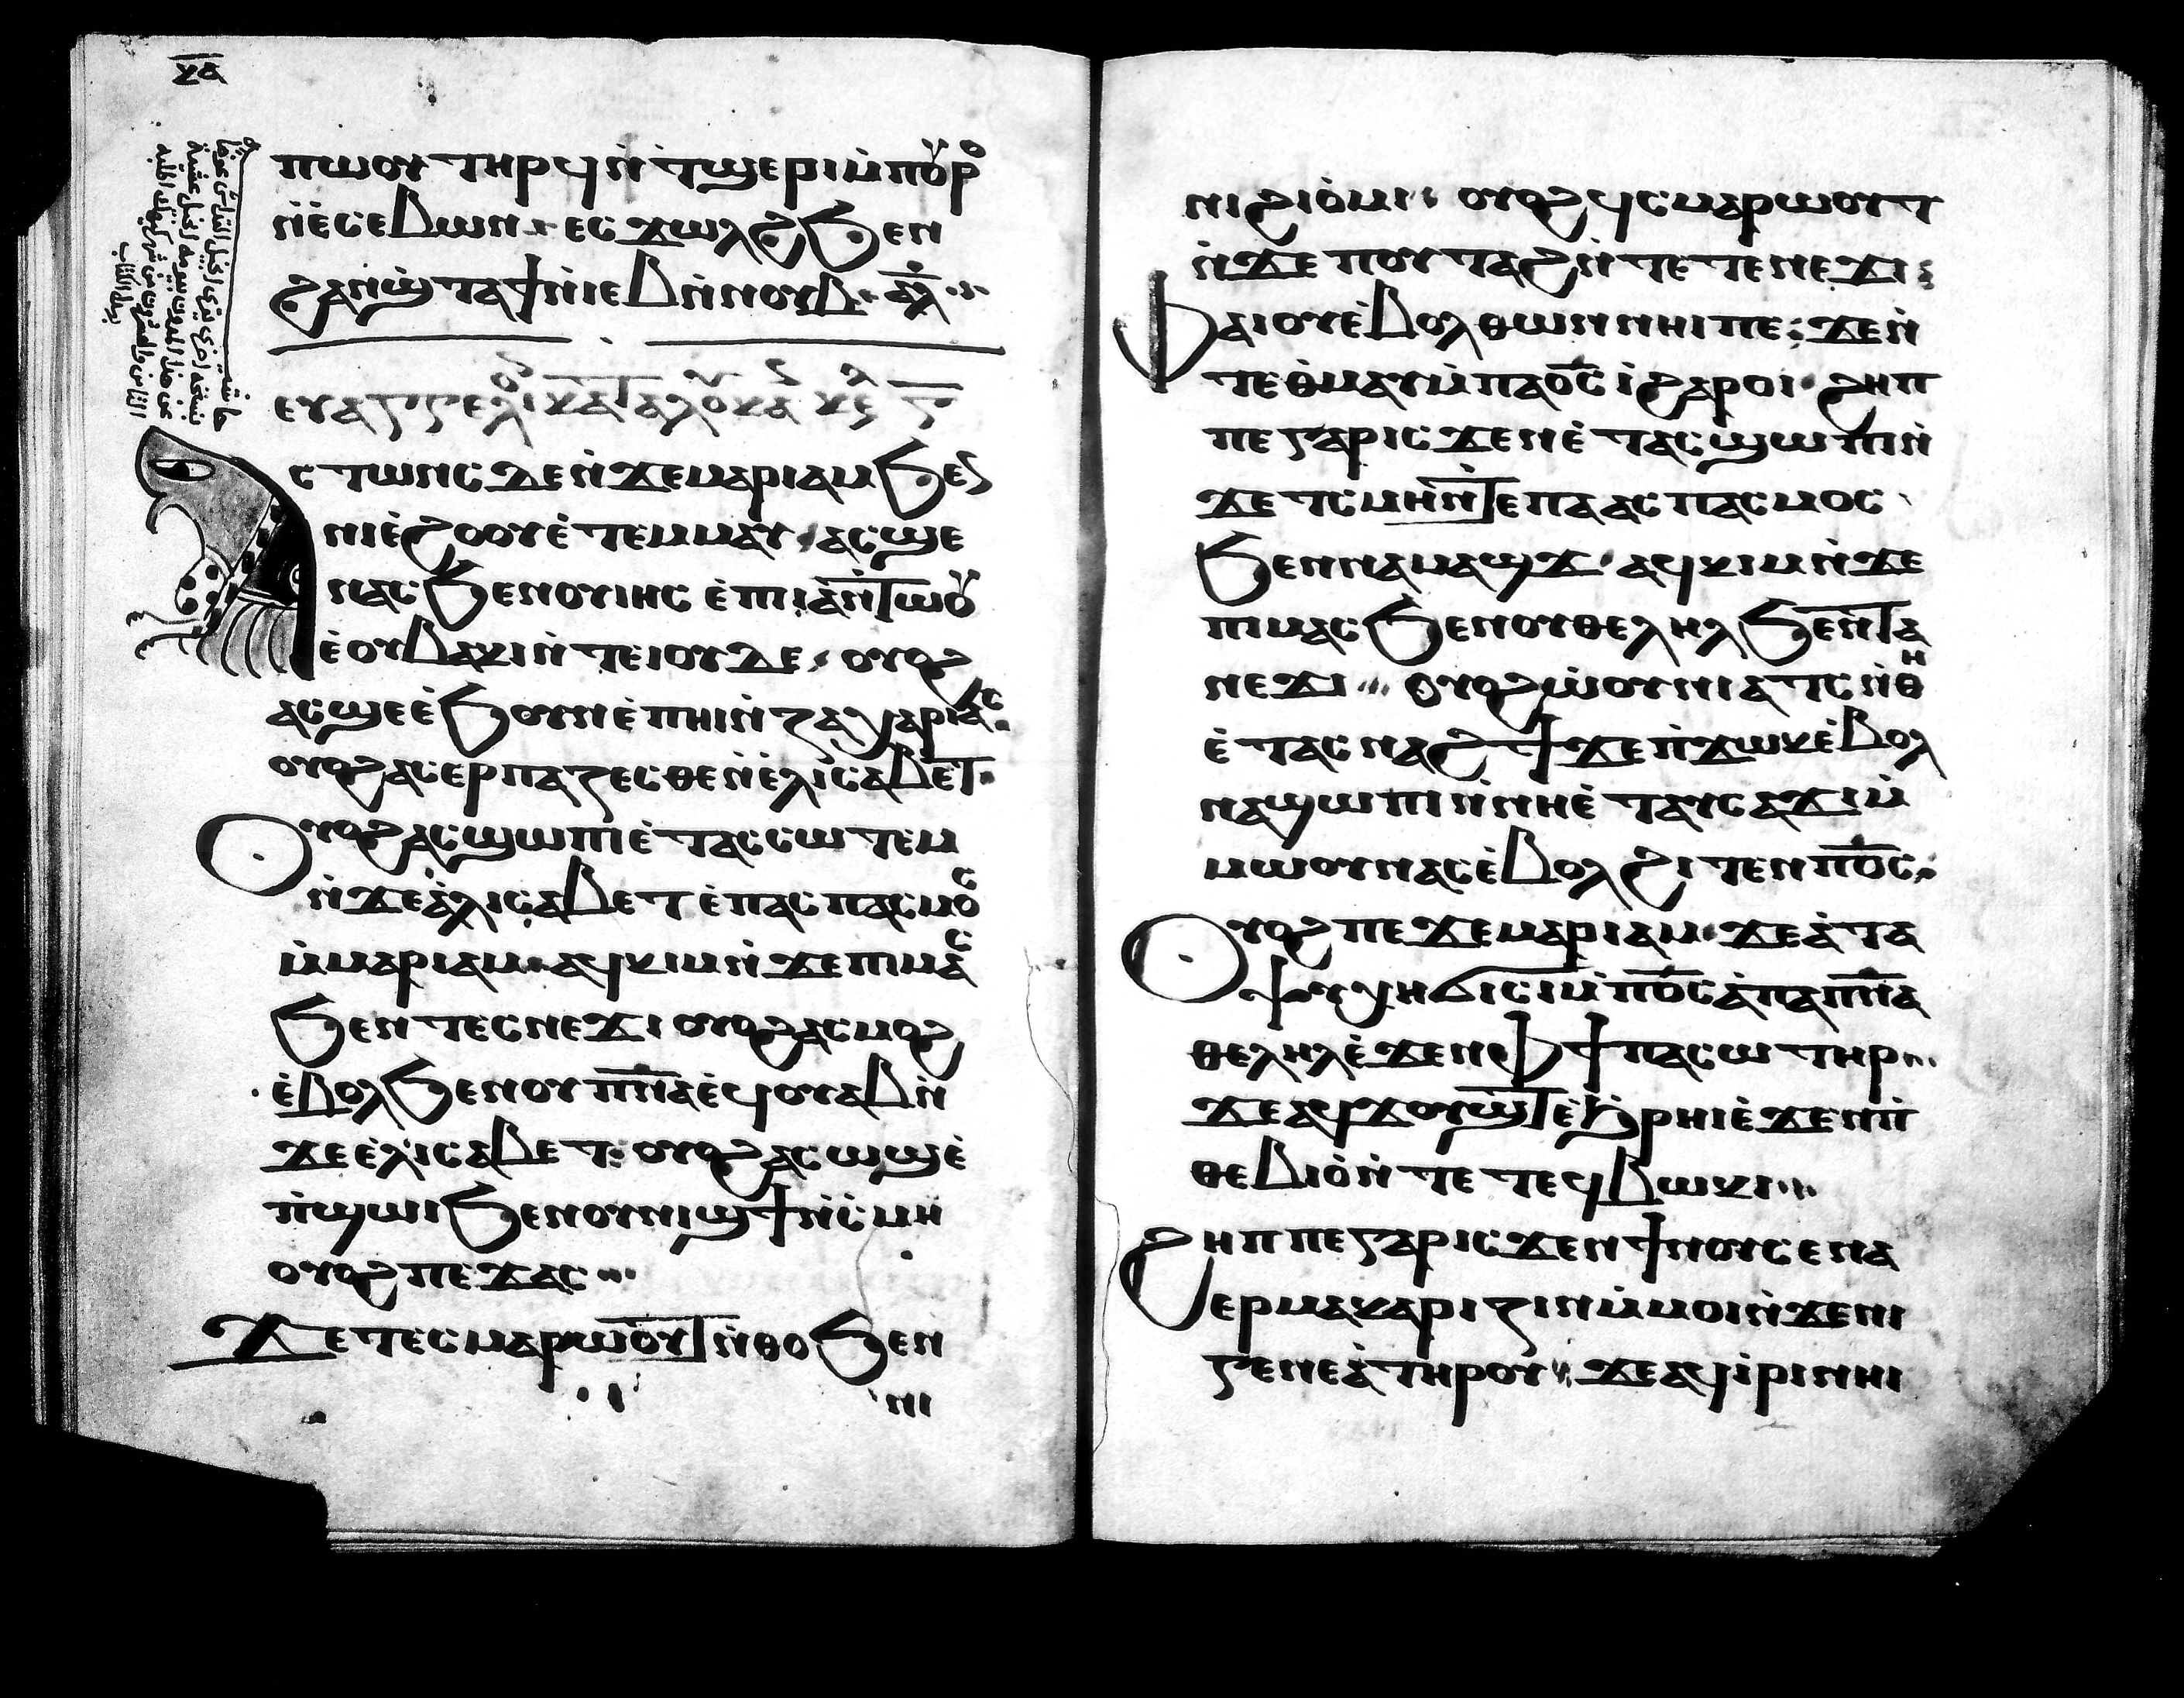 ⲕⲁ
ⲡⲱⲟⲩ ⲧⲏⲣϥ ⲛ̀ⲧϣⲉⲣⲓ ⲙ̀ⲡⲟⲩⲣⲟ
ⲛ̀ⲉⲥⲉⲃⲱⲛ ⲉⲥϫⲱⲗϩ ϧⲉⲛ
ϩⲁⲛϣ̀ⲧⲁϯ ⲛ̀ⲓⲉⲃ ⲛ̀ⲛⲟⲩⲃ ⲁⲗ
ⲉⲩⲁⲅⲅⲉⲗⲓⲟ ⲕⲁⲧⲁ ⲗⲟⲩⲕⲁ
ⲥⲧⲱⲛⲥ ⲇⲉ ⲛ̀ϫⲉ ⲙⲁⲣⲓⲁⲙ ϧⲉⲛ
ⲛⲓⲉ̀ϩⲟⲟⲩ ⲉ̀ⲧⲉⲙⲙⲁⲩ ⲁⲥϣⲉ
ⲛⲁⲥ ϧⲉⲛ ⲟⲩⲓⲏⲥ ⲉ̀ⲡⲓⲁ̀ⲛⲧⲱⲟⲩ
ⲉ̀ⲟⲩⲃⲁⲕⲓ ⲛ̀ⲧⲉ ⲓⲟⲩⲇⲉ ⲟⲩⲟϩ
ⲁⲥϣⲉ ⲉ̀ϧⲟⲩⲛ ⲉ̀ⲡⲏⲓ ⲛ̀ⲍⲁⲭⲁⲣⲓⲁⲥ
ⲟⲩⲟϩ ⲁⲥⲉⲣⲡⲁⲍⲉⲥⲑⲉ ⲛ̀ⲉ̀ⲗⲓⲥⲁⲃⲉⲧ
ⲟⲩⲟϩ ⲁⲥϣⲱⲡⲓ ⲉ̀ⲧⲁⲥⲥⲱⲧⲉⲙ
ⲛ̀ϫⲉ ⲁ̀ⲗⲓⲥⲁⲃⲉⲧ ⲉ̀ⲡⲁⲥⲡⲁⲥⲙⲟⲥ
ⲙ̀ⲙⲁⲣⲓⲁⲙ ⲁϥⲕⲓⲙ ⲛ̀ϫⲉ ⲡⲓⲙⲁⲥ
ϧⲉⲛ ⲧⲉⲥⲛⲉϫⲓ ⲟⲩⲟϩ ⲁⲥⲙⲟϩ
ⲉ̀ⲃⲟⲗ ϧⲉⲛ ⲟⲩⲡ̅ⲛ̅ⲁ̅ ⲉϥⲟⲩⲁⲃ ⲛ̀
ϫⲉ ⲉ̀ⲗⲓⲥⲁⲃⲉⲧ ⲟⲩⲟϩ ⲁⲥⲱϣ ⲉ̀
ⲡ̀ϣⲱⲓ ϧⲉⲛ ⲟⲩⲛⲓϣϯ ⲛ̀ⲥ̀ⲙⲏ
ⲟⲩⲟϩ ⲡⲉϫⲁⲥ
ϫⲉ ⲧⲉⲥⲙⲁⲣⲱⲟⲩⲧ ⲛ̀ⲑⲟ ϧⲉⲛ
ⲛⲓ
ⲛⲓϩⲓⲟ̀ⲙⲓ ⲟⲩⲟϩ ϥⲥⲙⲁⲣⲱⲟⲩⲧ
ⲛ̀ϫⲉ ⲡⲟⲩⲧⲁϩ ⲛ̀ⲧⲉ ⲧⲉⲛⲉϫⲓ
ⲫⲁⲓ ⲟⲩⲉ̀ⲃⲟⲗ ⲑⲱⲛ ⲛⲏⲓ ⲡⲉ ϫⲉⲛ̀
ⲧⲉ ⲑ̀ⲙⲁⲩ ⲙ̀ⲡⲁⲟ̅ⲥ̅ ⲓ̀ ϩⲁⲣⲟⲓ ϩⲏⲡ
ⲡⲉ ⲅⲁⲣ ⲓⲥϫⲉⲛ ⲉ̀ⲧⲁⲥϣⲱⲡⲓ ⲛ̀
ϫⲉ ⲧⲥⲙⲏ ⲛ̀ⲧⲉ ⲡⲁⲁⲥⲡⲁⲥⲙⲟⲥ
ϧⲉⲛ ⲛⲁⲙⲁϣϫ ⲁϥⲕⲓⲙ ⲛ̀ϫⲉ
ⲡⲓⲙⲁⲥ ϧⲉⲛ ⲟⲩⲑⲉⲗⲏⲗ ϧⲉⲛ ⲧⲁ
ⲛⲉϫⲓ ⲟⲩⲟϩ ⲱ̀ⲟⲩⲛⲓⲁⲧⲥ ⲛ̀ⲑⲏ
ⲉ̀ⲧⲁⲥⲛⲁϩϯ ϫⲉ ⲛ̀ϫⲱⲕ ⲉ̀ⲃⲟⲗ
ⲛⲁϣⲱⲡⲓ ⲛ̀ⲛⲏ ⲉ̀ⲧⲁⲩⲥⲁϫⲓ ⲙ̀
ⲙⲱⲟⲩ ⲛⲁⲥ ⲉ̀ⲃⲟⲗ ϩⲓⲧⲉⲛ ⲡ̅ⲟ̅ⲥ̅
ⲟⲩⲟϩ ⲡⲉϫⲉ ⲙⲁⲣⲓⲁⲙ ϫⲉ ⲁ̀ ⲧⲁ
ⲯⲩⲭⲏ ϭⲓⲥⲓ ⲙ̀ⲡ̅ⲟ̅ⲥ̅ ⲁ̀ ⲡⲁⲡ̅ⲛ̅ⲁ̅
ⲑⲉⲗⲏⲗ ⲉ̀ϫⲉⲛ ⲫϯ ⲡⲁⲥⲱⲧⲏⲣ
ϫⲉ ⲁϥϫⲟⲩϣⲧ ⲉ̀ϧⲣⲏⲓ ⲉ̀ϫⲉⲛ ⲡ̀
ⲑⲉⲃⲓⲟ̀ ⲛ̀ⲧⲉ ⲧⲉϥⲃⲱⲕⲓ
ϩⲏⲡⲡⲉ ⲅⲁⲣ ⲓⲥϫⲉⲛ ϯⲛⲟⲩ ⲥⲉⲛⲁ
ⲉⲣⲙⲁⲕⲁⲣⲓⲍⲓⲛ ⲙ̀ⲙⲟⲓ ⲛ̀ϫⲉ ⲛⲓ
ⲅⲉⲛⲉⲁ̀ ⲧⲏⲣⲟⲩ ϫⲉ ⲁϥⲓ̀ⲣⲓ ⲛⲏⲓ